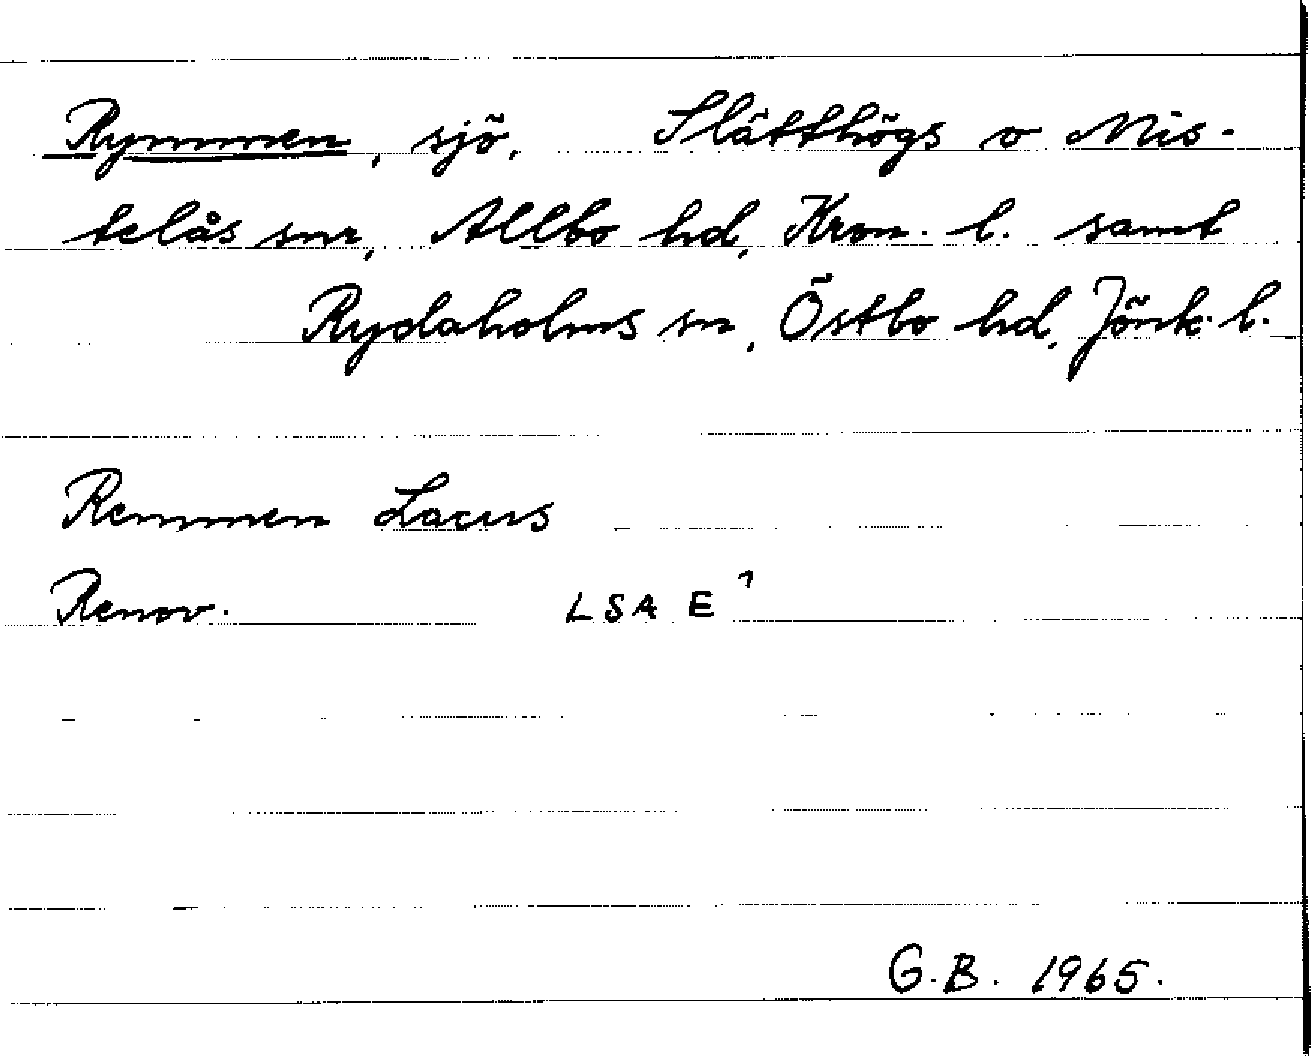 Rymmen, sjö. Slätthögs o Mis-
telås snr, Allbo hd, Kron. l. samt
Rydaholms sn, Östbo hd, Jönk. l.
Remmen Lacus
Renov. LSA E¹
G.B. 1965.